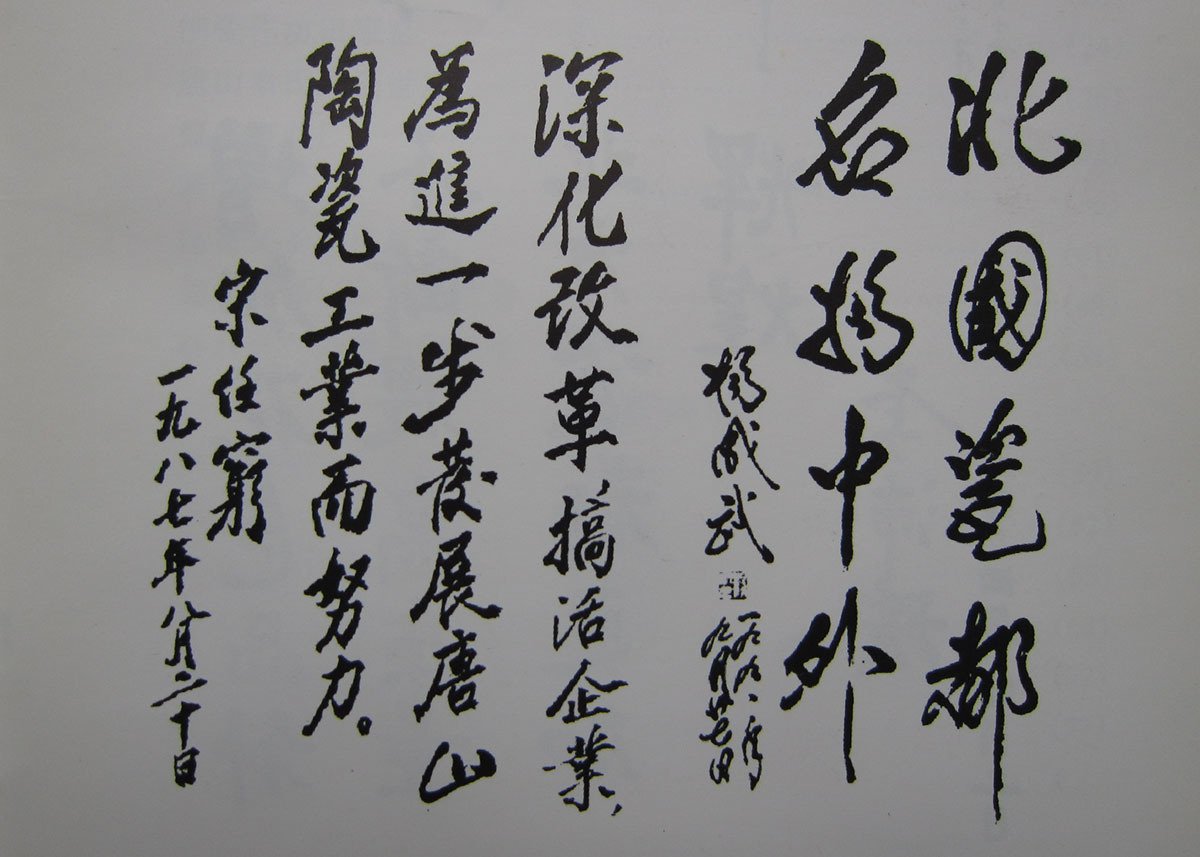 北國瓷都
名揚中外
楊成武
一九九一年
九月廿七日
深化改革搞活企業，
為進一步發展唐山
陶瓷工業而努力。
宋任窮
一九八七年八月二十日